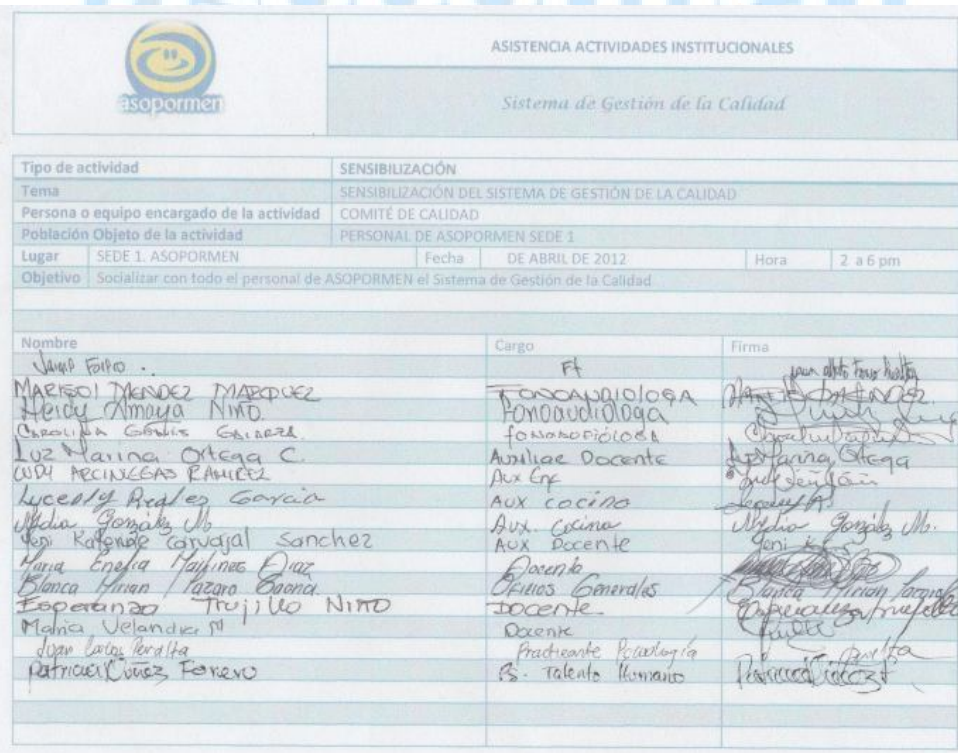 asopormen
ASISTENCIA ACTIVIDADES INSTITUCIONALES
Sistema de Gestión de la Calidad
Tipo de actividad SENSIBILIZACIÓN
Tema SENSIBILIZACIÓN DEL SISTEMA DE GESTIÓN DE LA CALIDAD
Persona o equipo encargado de la actividad COMITÉ DE CALIDAD
Población Objeto de la actividad PERSONAL DE ASOPORMEN SEDE 1
Lugar SEDE 1. ASOPORMEN Fecha DE ABRIL DE 2012 Hora 2 a 6 pm
Objetivo Socializar con todo el personal de ASOPORMEN el Sistema de Gestión de la Calidad
Nombre Cargo Firma
Ft
MARISOL MENDEZ MARQUEZ FONOAUDIOLOGA
Heidy Amaya Niño Fonoaudiologa
CAROLINA
Luz Marina Ortega C. Auxiliar Docente Luz Marina Ortega
ARCINIEGAS RAMIREZ Aux Enf
Garcia AUX cocina
Nydia González M. Aux. cocina Nydia González M.
Yeni Carvajal Sanchez AUX Docente Yeni
Maria Diaz Docente
Blanca Mirian Oficios Generales Blanca Mirian
Esperanza Trujillo NIÑO DOCENTE Esperanza Trujillo
Maria Velandia M Docente
Juan Carlos Peralta Practicante Psicología Peralta
Patricia Forero Ps. Talento Humano